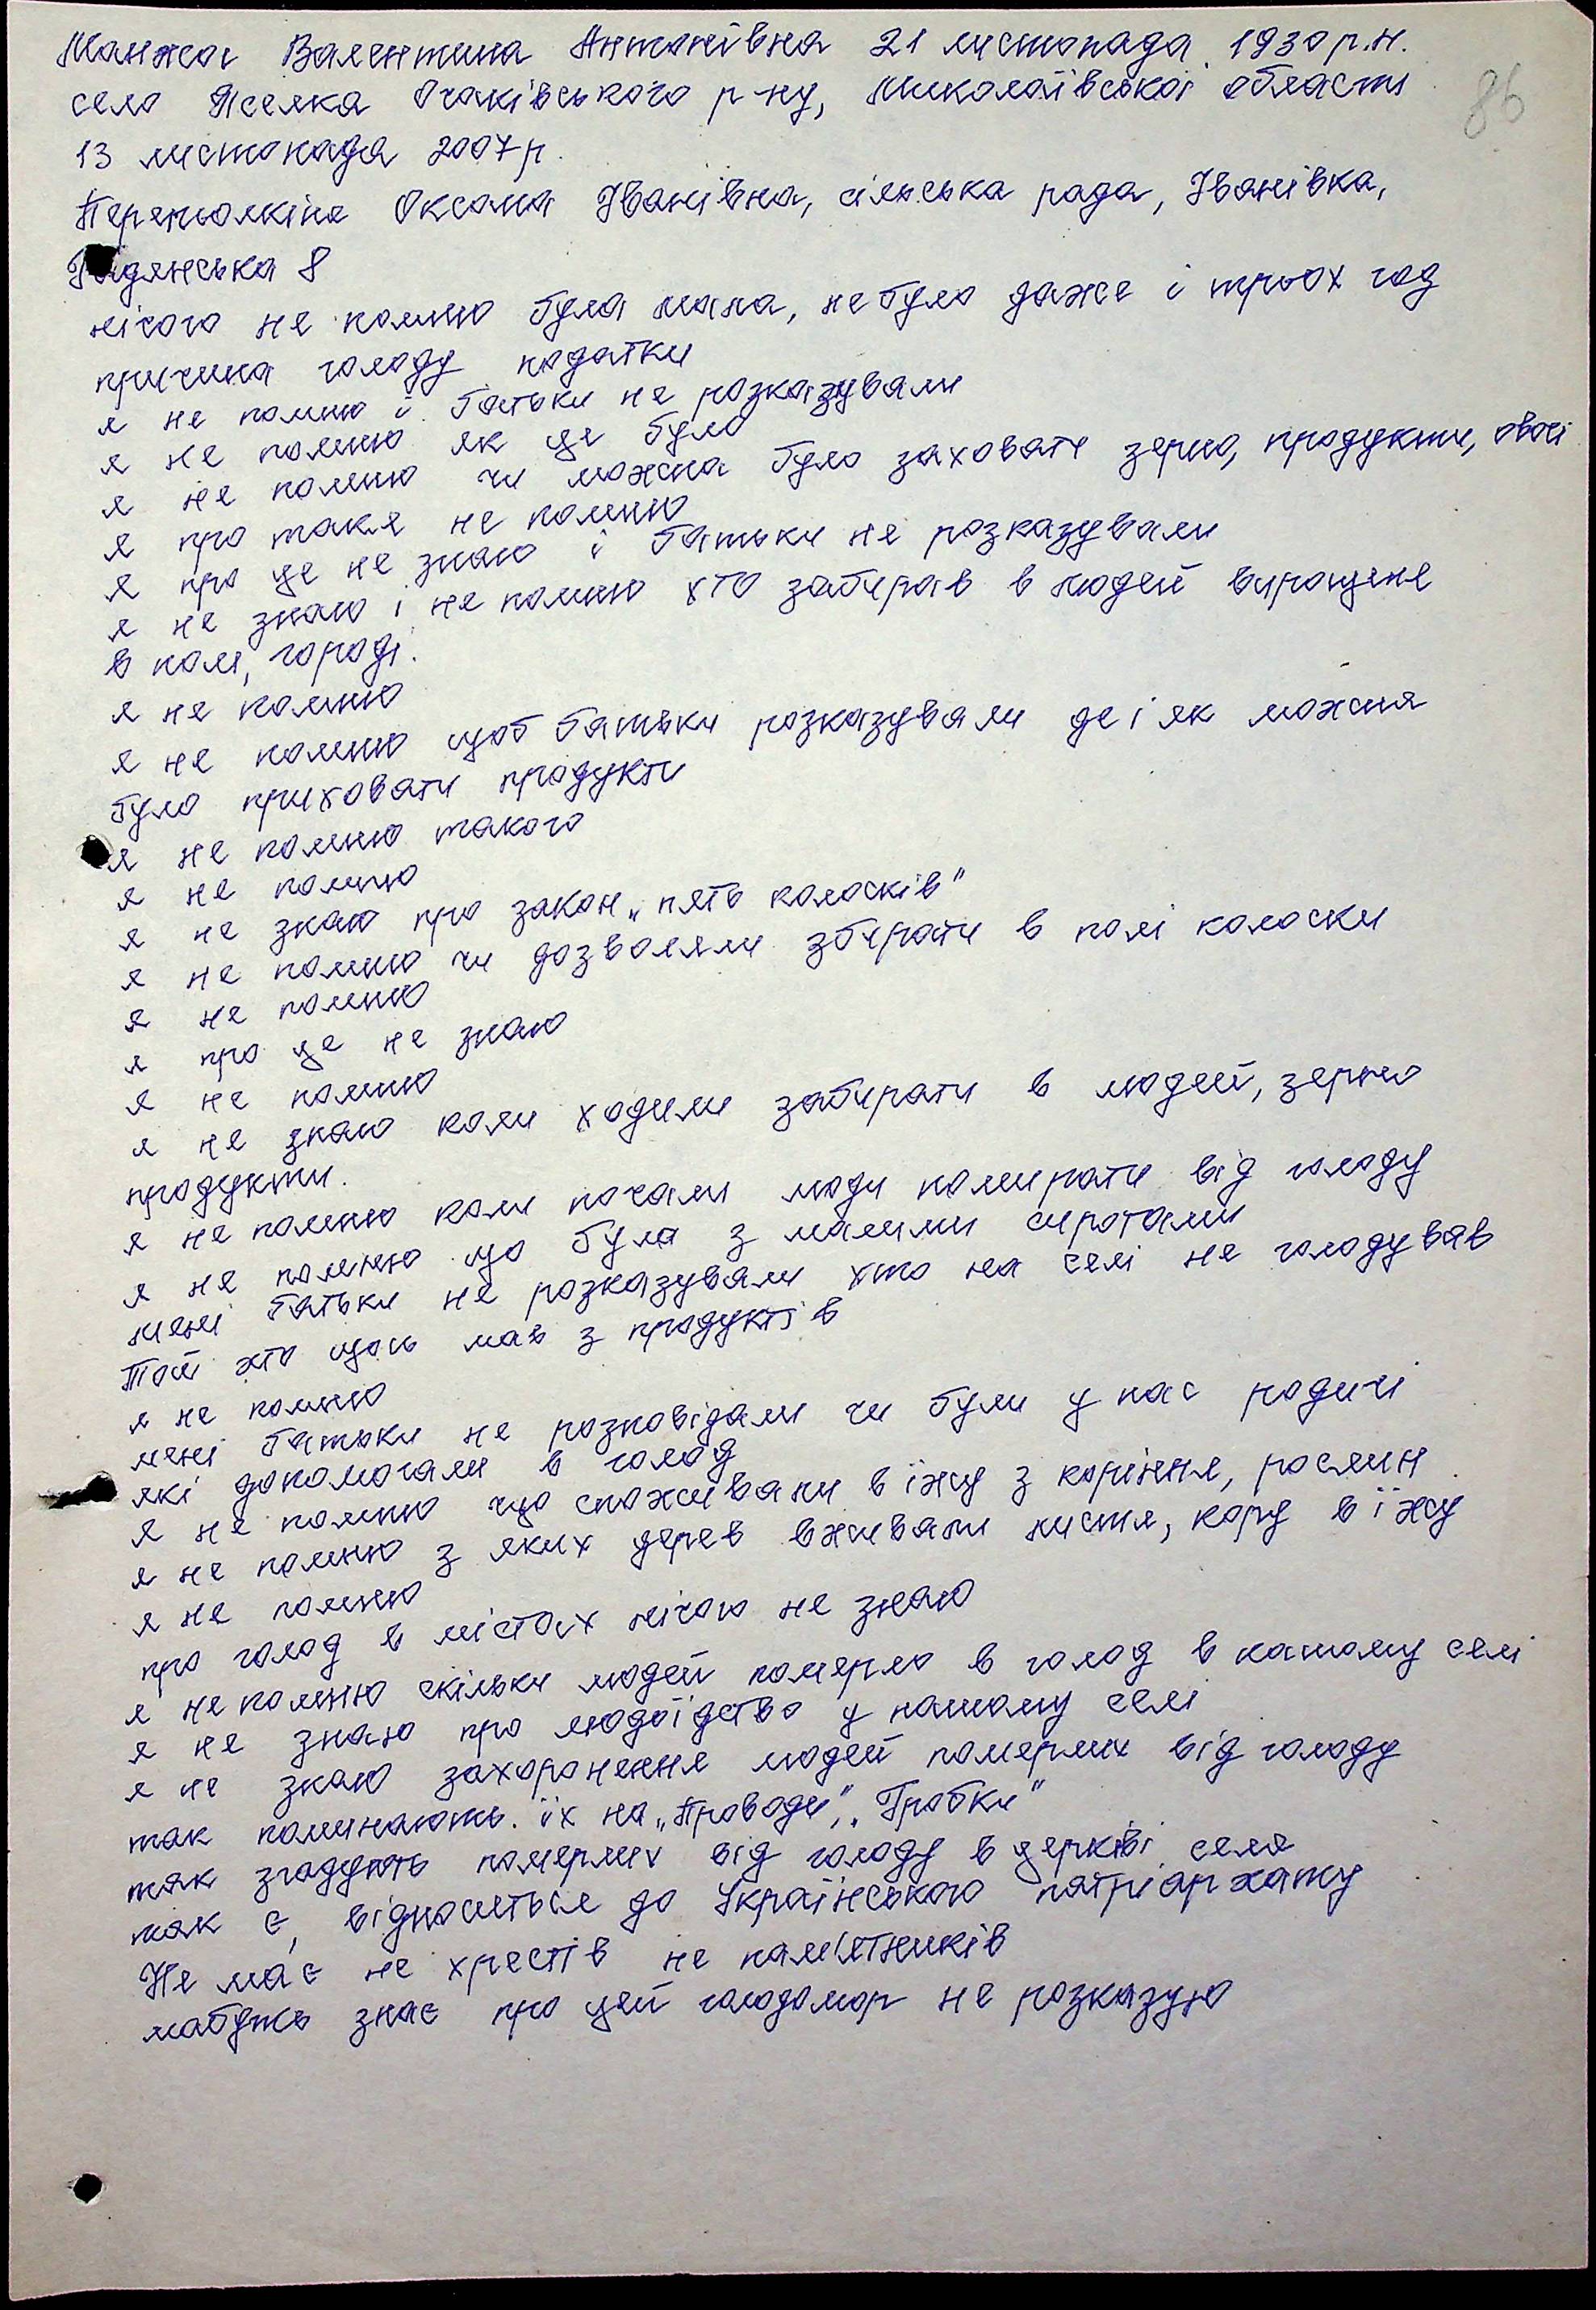 Манжос Валентина Антонівна 21 листопада 1930 р.н.
село Яселка Очаківського р-ну, Миколаївської області
86
13 листопада 2007р.
Оксана Іванівна, сільська рада, Іванівка,
Радянська 8
нічого не помню була мала, не було даже і трьох год
причина голоду податки
я не помню і батьки не розказували
я не помню як це було
я не помню чи можна було заховати зерно, продукти, овочі
я про таке не помню
я про це не знаю і батьки не розказували
я не знаю і не помню хто забирав в людей вирощене
в полі, городі.
я не помню
я не помню щоб батьки розказували де і як можна
було приховати продукти
я не помню такого
я не помню
я не знаю про закон „пять колосків"
я не помню чи дозволяли збирати в полі колоски
я не помню
я про це не знаю
я не помню
я не знаю коли ходили забирати в людей, зерно
продукти.
я не помню коли почали люди помирати від голоду
я не помню що була з малими сиротами
мені батьки не розказували хто на селі не голодував
той хто щось мав з продуктів
я не помню
мені батьки не розповідали чи були у нас родичі
які допомогали в голод
я не помню що споживали в їжу з коріння, рослин
я не помню з яких дерев вживали листя, кору в їжу
я не помню
про голод в містах нічого не знаю
я не помню скільки людей померло в голод в нашому селі
я не знаю про людоїдство у нашому селі
я не знаю захоронення людей померлих від голоду
так поминають. їх на „Проводи", „Гробки"
так згадують померлих від голоду в церкві села
так є, відноситься до Українського патріархату
Не має не хрестів не пам'ятників
мабуть знає про цей голодомор не розказую